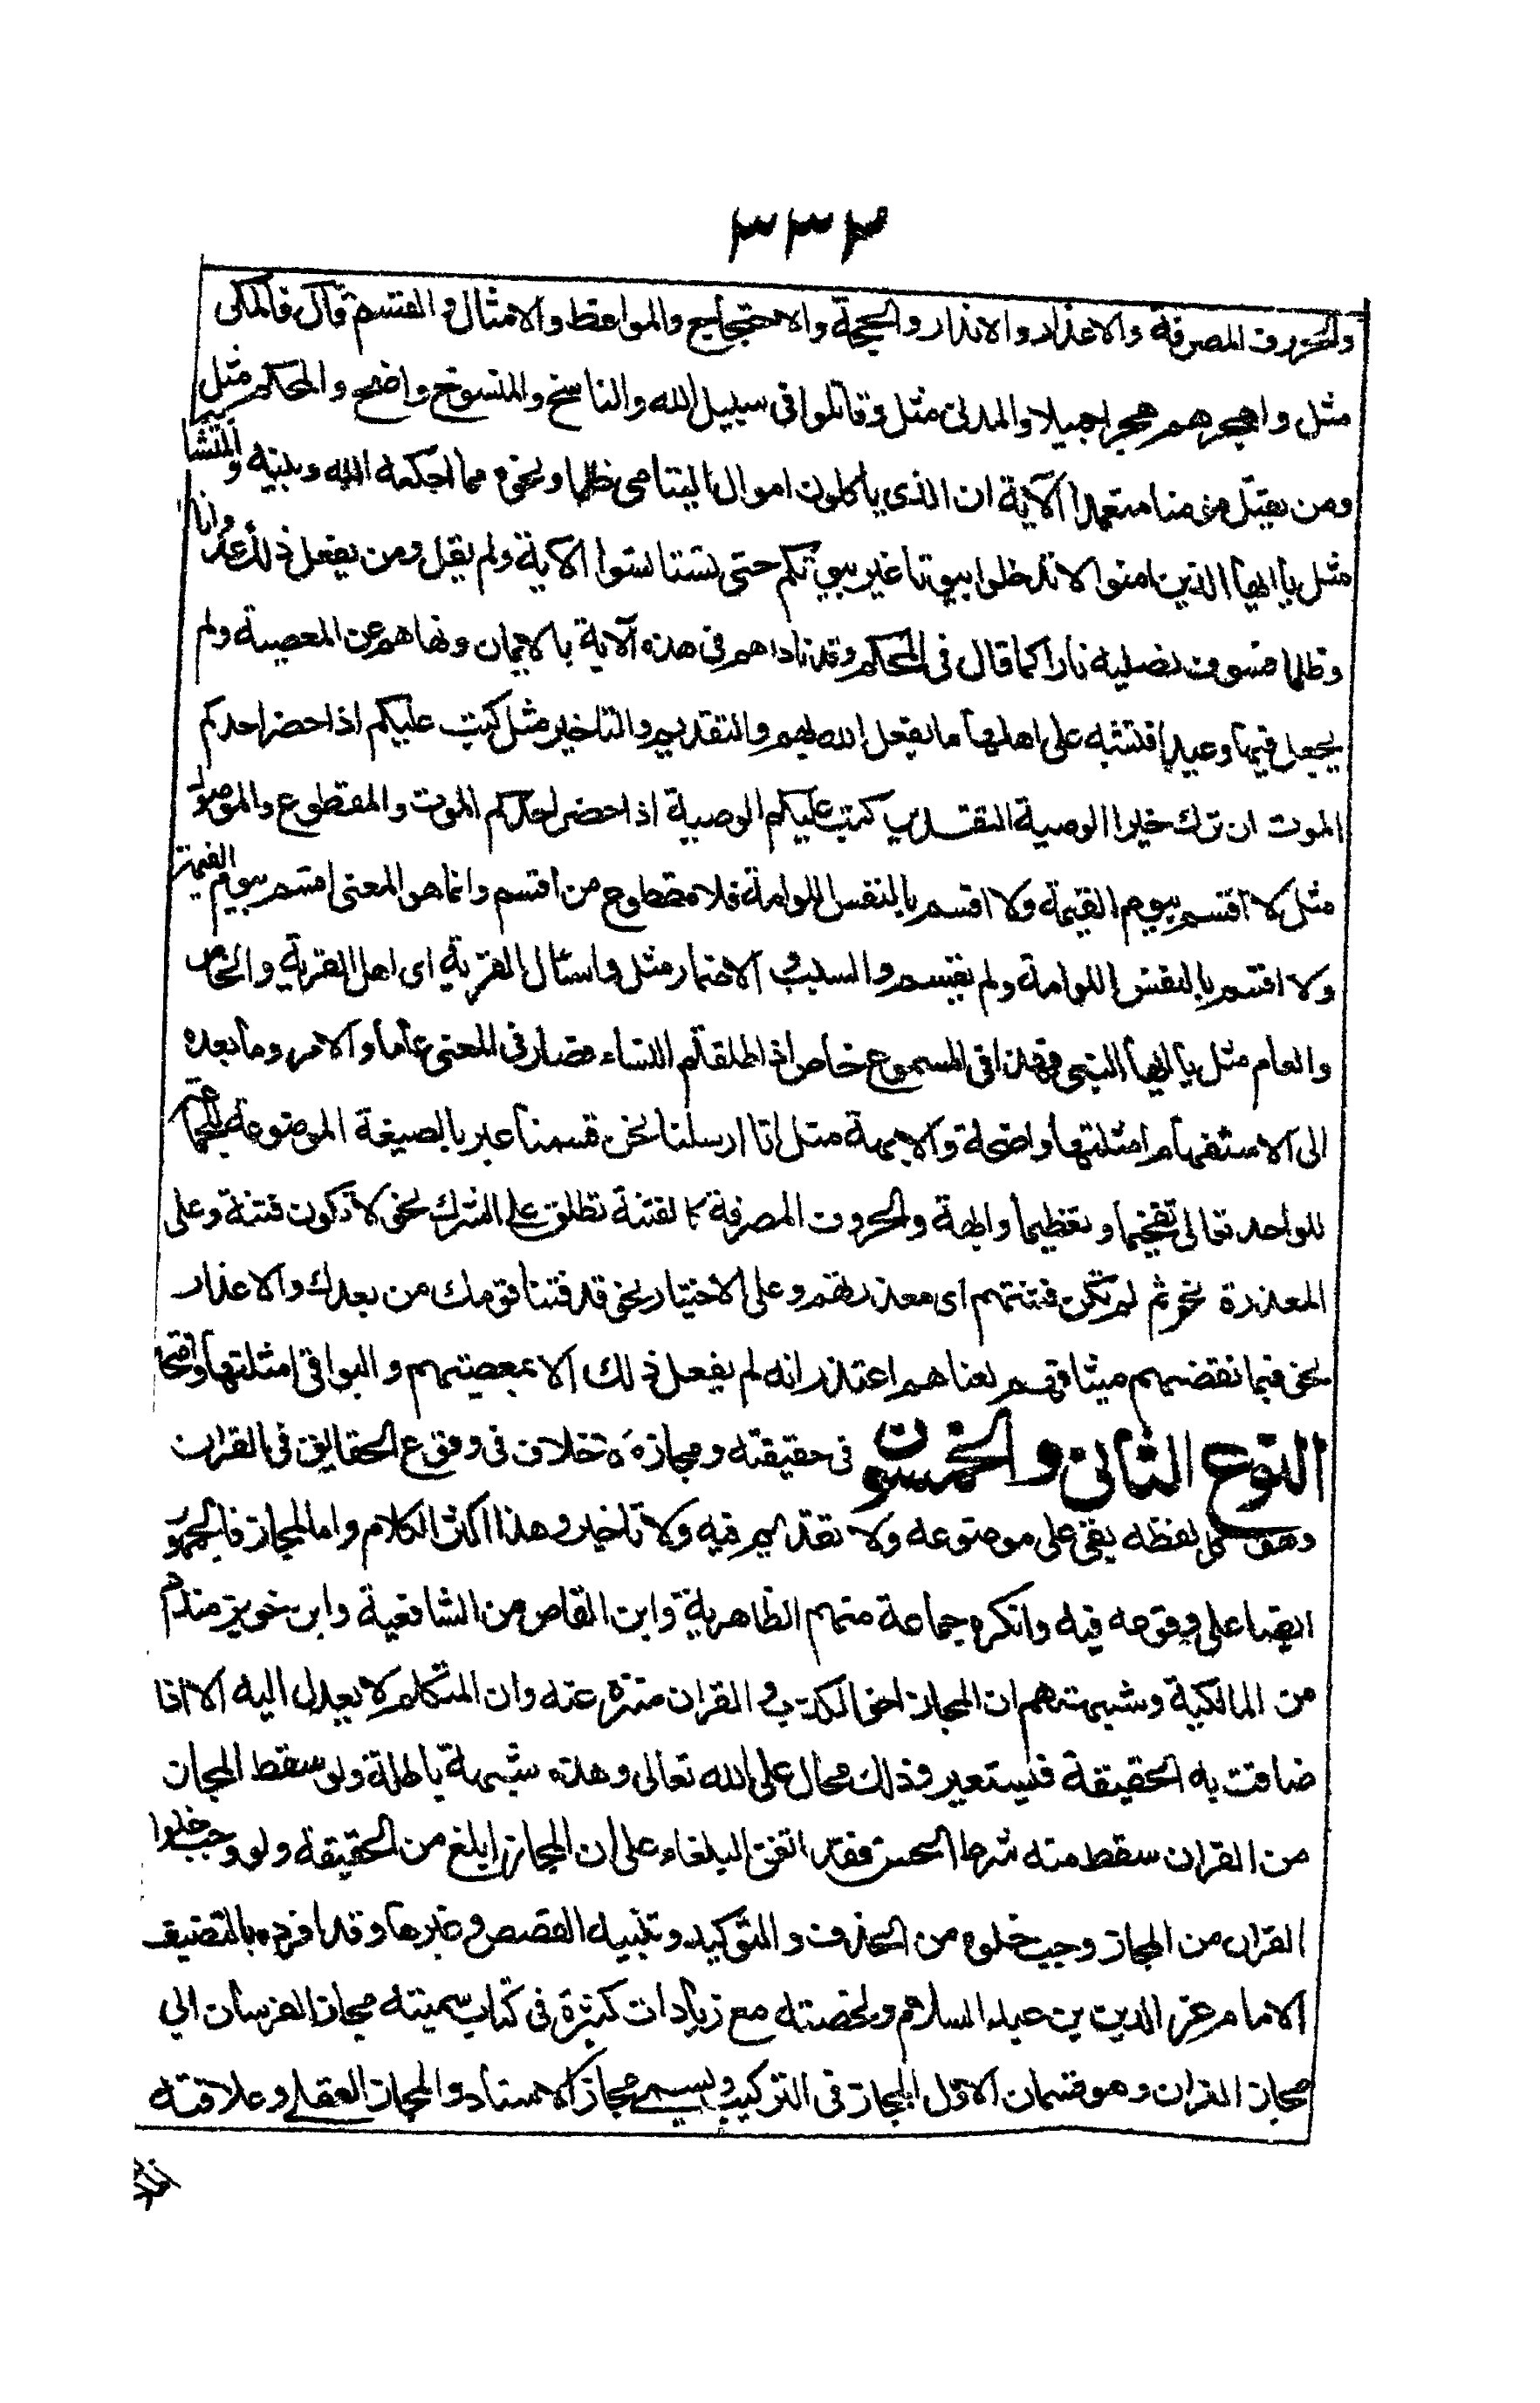 ٣٣٢
والحروف المصرفة والاعذار والانذار والحجة والاحتجاج والمواعظ والامثال والقسم قال فالمكى
مثل واهجرهم هجرا جميلا والمدنى مثل وقاتلوا فى سبيل الله والناسخ والمنسوخ واضح والمحكم مثل
ومن يقتل مؤمنا متعمدا الآية ان الذى ياكلون اموال اليتامى ظلما ونحوه مما احكمه الله وبينه والمتشابه
مثل يا ايها الذين امنوا لا تدخلوا بيوتا غير بيوتكم حتى تستانسوا الاية ولم يقل ومن يفعل ذلك عدوانا
وظلما فسوف نصليه نارا كما قال فى المحكم وقد ناداهم فى هذه الآية بالايمان ونهاهم عن المعصية ولم
يجعل فيها وعيدا فاشتبه على اهلها ما يفعل الله بهم والتقديم والتاخير مثل كتب عليكم اذا حضر احدكم
الموت ان ترك خيرا الوصية التقدير كتب عليكم الوصية اذا حضر احدكم الموت والمقطوع والموصول
مثل لا اقسم بيوم القيمة ولا اقسم بالنفس اللوامة فلا مقطوع من اقسم وانما هو المعنى اقسم بيوم القيمة
ولا اقسم بالنفس اللوامة ولم يقسم والسبب والاضمار مثل واسئال القرية اى اهل القرية والخاص
والعام مثل يا ايها النبى فهذا فى المسموع خاص اذا طلقتم النساء فصار فى المعنى عاما والامر وما بعده
الى الاستفهام امثلتها واضحة والابهة مثل انا ارسلنا نحن قسمنا عبر بالصيغة الموضوعة للجماعة
للواحد تعالى تفخيما وتعظيما وابهة والحروف المصرفة كالفتنة تطلق على الشرك نحو لا تكون فتنة وعلى
المعذرة نحو ثم لم تكن فتنتهم اى معذرتهم وعلى الاختيار نحو قد فتنا قومك من بعدك والاعذار
نحو فبما نقضهم ميثاقهم لعناهم اعتذر انه لم يفعل ذلك الا بمعصيتهم والبواقى امثلتها واضحة
النوع الثانى والخمسون فى حقيقته ومجازه لا خلاف فى وقوع الحقايق فى القران
وهو كل لفظه بقى على موضوعه ولا تقديم فيه ولا تاخير وهذا اكثر الكلام واما المجاز فالجمهور
ايضا على وقوعه فيه وانكره جماعة منهم الظاهرية وابن القاص من الشافعية وابن خويز منداد
من المالكية وشبهتهم ان المجاز اخو الكذب والقران منزه عنه وان المتكلم لا يعدل اليه الا اذا
ضاقت به الحقيقة فيستعير وذلك محال على الله تعالى وهذه شبهة باطلة ولو سقط المجاز
من القران سقط منه شطر الحسن فقد اتفق البلغاء على ان المجاز ابلغ من الحقيقة ولو وجب خلوا
القران من المجاز وجب خلوه من الحذف والتوكيد وتثنيه القصص وغيرها وقد افرده بالتصنيف
الامام عز الدين بن عبد السلام ولخصته مع زيادات كثيرة فى كتاب سميته مجاز الفرسان الي
مجاز القران وهو قسمان الاول المجاز فى التركيب ويسمى مجاز الاسناد والمجاز العقلى وعلاقته